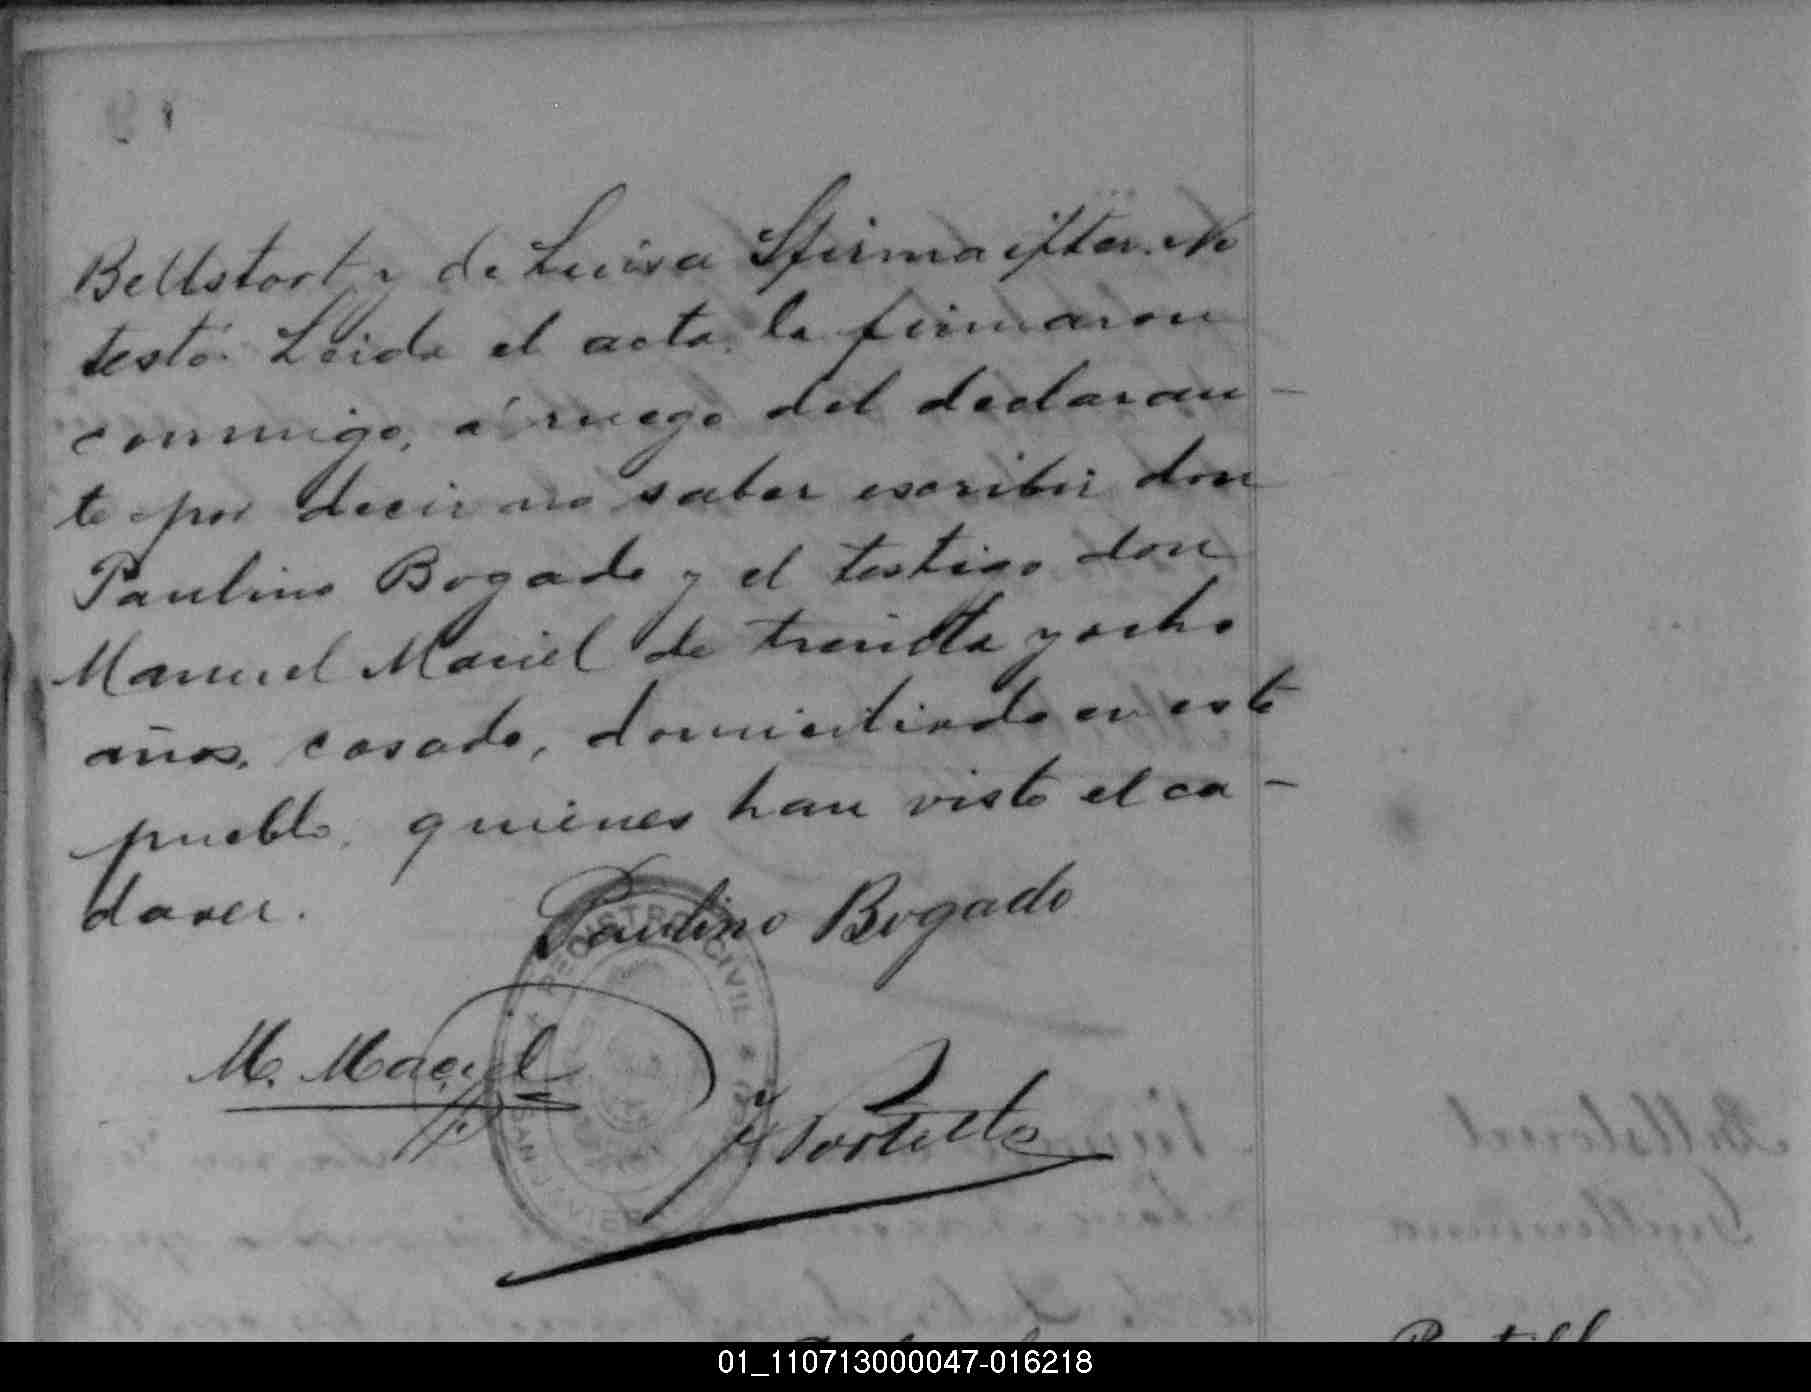 Bellstort y de Luisa
testó. Leida el acta, la firmaron
conmigo, á ruego del declaran-
te por decir no saber escribir don
Paulino Bogado y el testigo don
Manuel Maciel de treinta y ocho
años, casado, domiciliado en este
pueblo, quienes han visto el ca-
daver.
Paulino Bogado
REGISTRO CIVIL
M. Maciel
Portillo
01_110713000047-016218